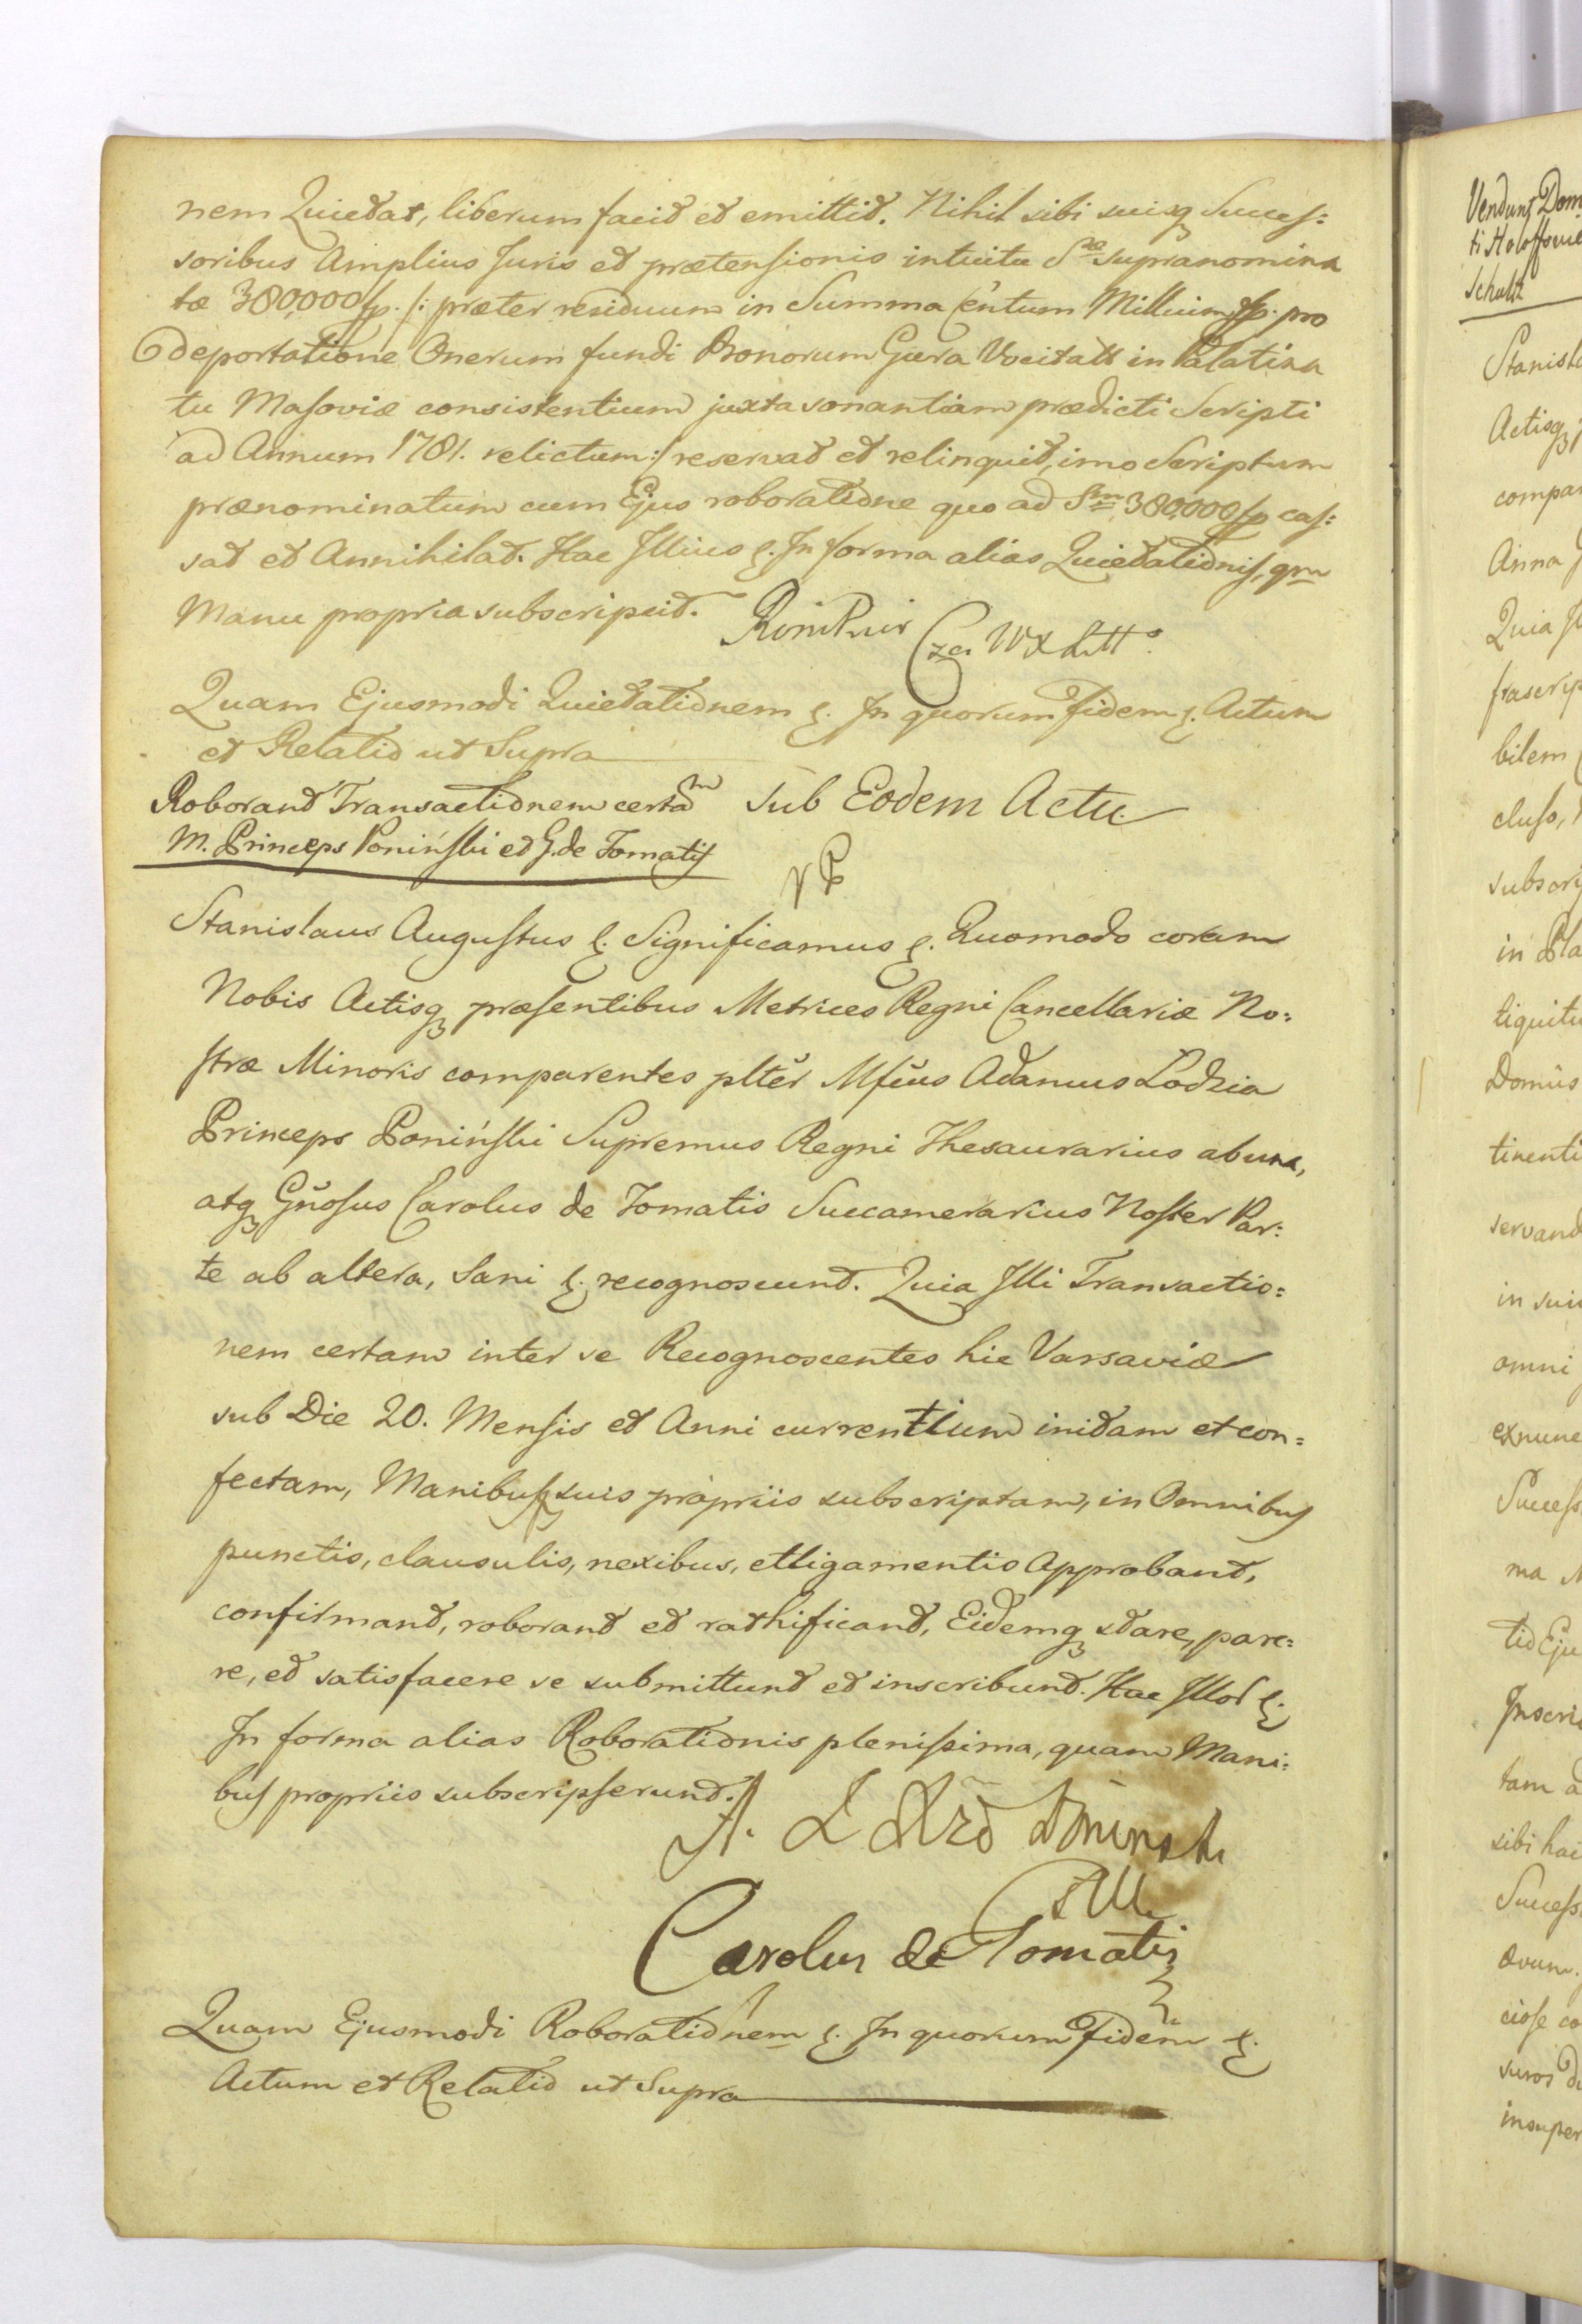 nem Quietat, liberum facit et emittit. Nihil sibi suisq Succes:
soribus Amplius Juris et prætensionis intuitu Sæ Supranomina
tæ 380,000 fp. /: præter residuum in Summa Centum Millium fp. pro
deportatione Onerum fundi Bonorum Gura Vocitatt in Palatina
tu Masoviæ consistentium juxta sonantiam prædicti Scripti
ad Annum 1781. relictum :/ reservat et relinquit, imo Scriptum
prænominatum cum Ejus roboratione quo ad Sm 380,000 fp cas:
sat et Annihilat. Hac Illius &. In forma alias Quietationis, qm
Manu propria subscripsit.
WX Litt
Quam Ejusmodi Quietationem &. In quorum Fidem &. Actum
et Relatio ut Supra
Roborant Transactionem certam
M. Princeps Poniński et G. de Tomatis
Sub Eodem Actu
Stanislaus Augustus &. Significamus &. Quomodo coram
Nobis Actisq præsentibus Metrices Regni Cancellariæ No:
stræ Minoris comparentes plter Mfcus Adamus Lodzia
Princeps Poniński Supremus Regni Thesaurarius ab una,
atq Gnosus Carolus de Tomatis Succamerarius Noster Par:
te ab altera, Sani &. recognoscunt. Quia Illi Transactio:
nem certam inter se Recognoscentes hic Varsaviæ
sub Die 20. Mensis et Anni currentium initam et con:
fectam, Manibusq suis propriis subscriptam, in Omnibus
punctis, clausulis, nexibus, et ligamentis Approbant,
confirmant, roborant et rathificant, Eidemq stare, pare:
re, et satisfacere se submittunt et inscribunt. Hac Illor &.
In forma alias Roborationis plenissima, quam Mani:
bus propriis subscripserunt.
A. L
Carolus de Tomatis
Quam Ejusmodi Roborationem &. In quorum Fidem &.
Actum et Relatio ut Supra
Vendunt Dom
Schultz
Stanisl
Actisq
compar
Anna
Quia
frascrip
bilem
cluso,
subscri
in Pla
tiquitu
Domus
tinenti
servand
in sui
omni
exnunc
Success
ma
tio Eju
Inscri
tam a
sibi hai
Success
ævum.
ciose co
suros
insuper